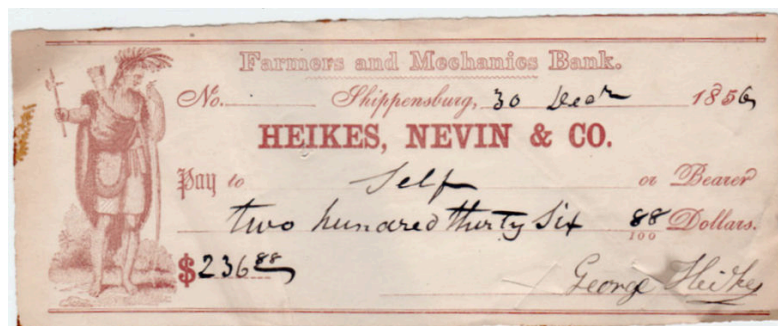 Farmers and Mechanics Bank.
No. Shippensburg, 30 Decr 1856
HEIKES, NEVIN & CO.
Pay to Self or Bearer
two hundred thirty six 88/100 Dollars.
$236 88
George Heikes